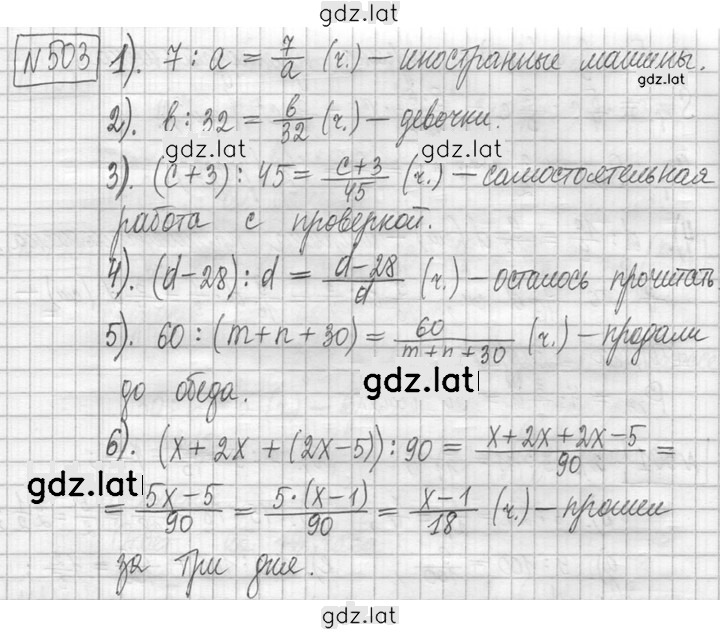 gdz.lat
№503 1). 7 : a = 7/a (ч.) – иностранные машины.
gdz.lat
2). b : 32 = b/32 (ч.) – девочки.
gdz.lat gdz.lat
3). (c+3) : 45 = c+3/45 (ч.) – самостоятельная
работа с проверкой.
4). (d–28) : d = d–28/d (ч.) – осталось прочитать.
5). 60 : (m+n+30) = 60/m+n+30 (ч.) – продали
gdz.lat
до обеда.
6). (x+2x+(2x–5)) : 90 = x+2x+2x–5/90 =
gdz.lat
= 5x–5/90 = 5·(x–1)/90 = x–1/18 (ч.) – прошел
за три дня.
gdz.lat